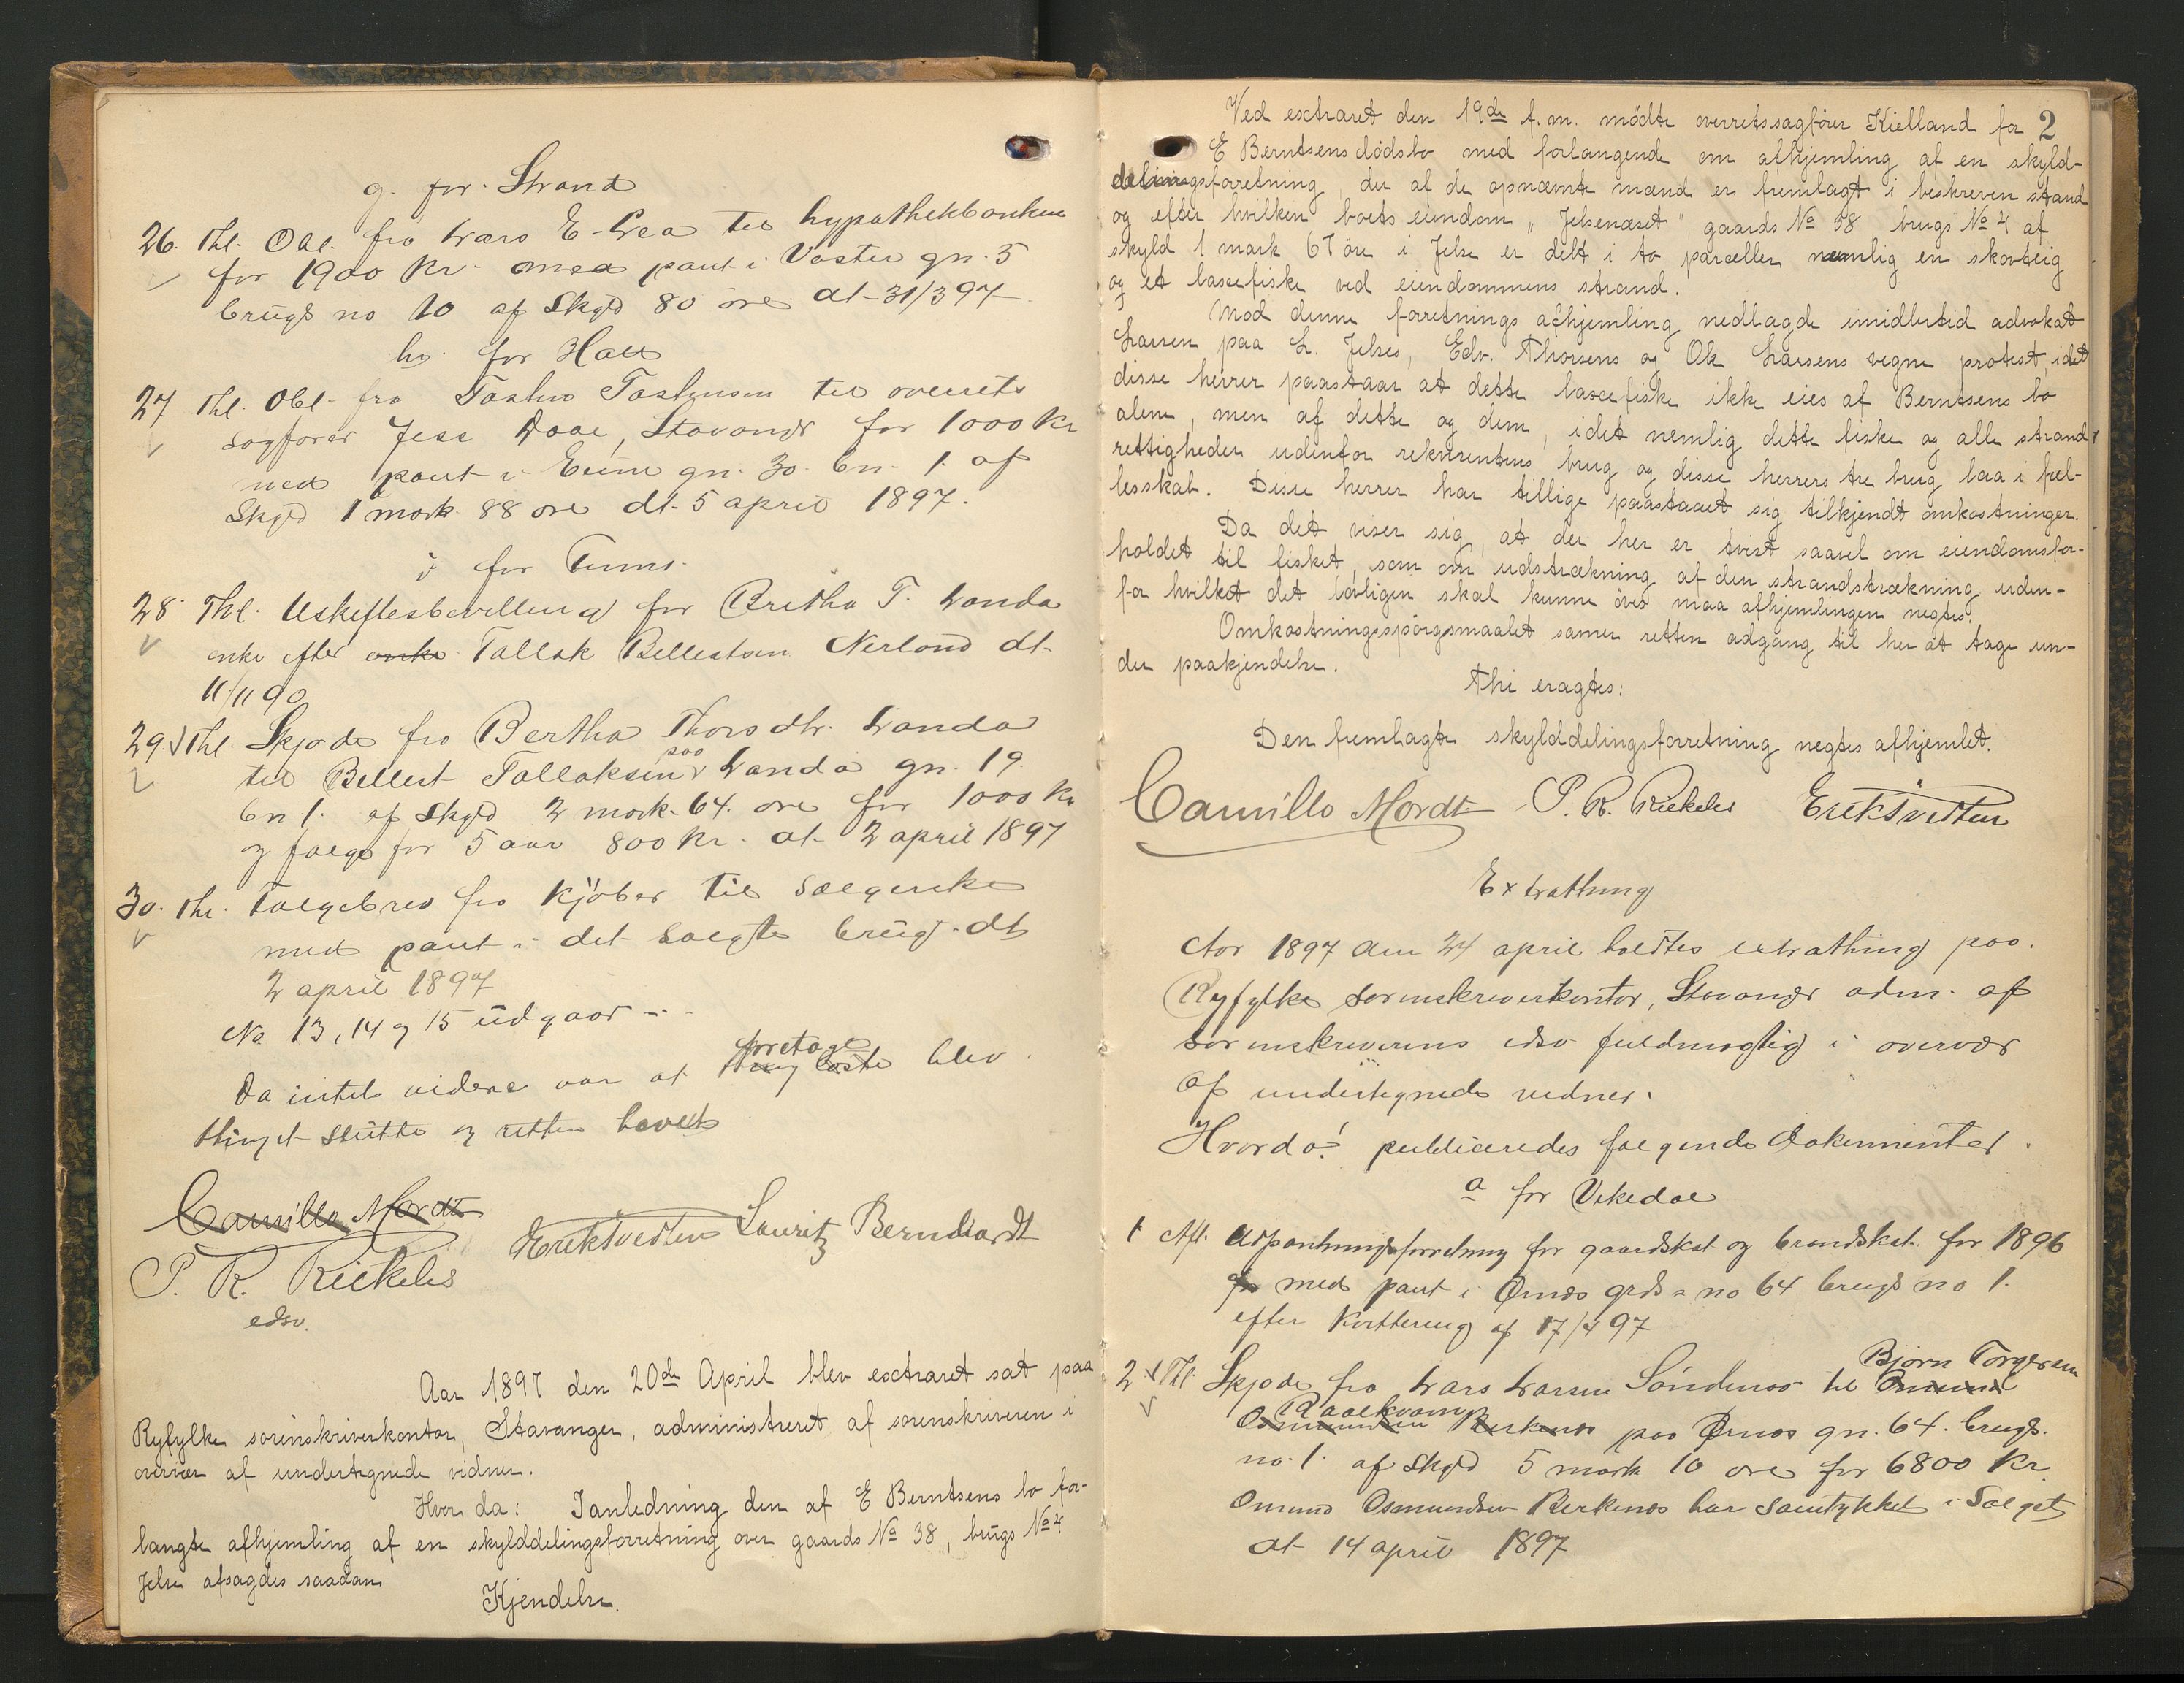 g. for Strand
26. Thl. Obl. fra Lars E. Lea til hypothekbanken
for 1900 Kr. med pant i Vaster gn. 5
brugs no 10 af Skyld 80 øre dt 31/3 97
h. for Hall
27 Thl. Obl. fra Tosten Tostensen til overrets
sagfører Jess Daae, Stavanger for 1000 Kr
med pant i Eime gn. 30. bn. 1. af
Skyld 1 mark 88 øre dt. 5 april 1897.
i for
28 Thl. Uskiftesbevilling for Britha T. Landa
enke efter enke Tallak Bellestsen Nerland dt.
11/11 90
29. Thl. Skjøde fra Bertha Thorsdtr. Landa
til Bellest Tallaksen paa Landa gn. 19.
bn 1. af Skyld 2 mark 64. øre for 1000 Kr
og følge for 5 aar 800 Kr. dt. 2 april 1897
30. Thl. Følgebrev fra Kjøber til sælgerske
med pant i det solgte brug. dt
2 april 1897
No. 13, 14 og 15 udgaar
Da intet videre var at foretage blev
thinget sluttet og retten hævet
Camillo Mordt
Erik Tvedten Lauritz Bernhardt
P. R. Rickeles
edsv.
Aar 1897 den 20de April blev extraret sat paa
Ryfylke sorenskriverkontor, Stavanger, administreret af sorenskriveren i
overvær af undertegnede vidner.
Hvor da: I anledning den af E Berntsens bo for-
langte afhjemling af en skylddelingsforretning over gaards No 38, brugs No 4
Jelse afsagdes saadan
Kjendelse.
2
Ved extraret den 19de d.m. mødte overretssagfører Kielland for
E Berntsens dødsbo med forlangende om afhjemling af en skyld-
delingsforretning, der af de opnævnte mænd er fremlagt i beskreven stand
og efter hvilken boets eiendom „Jelsenæset" gaards No 38 brugs No 4 af
skyld 1 mark 67 øre i Jelse er delt i to parceller nemlig en skovteig
og et laxefiske ved eiendommens strand.
Mod denne forretnings afhjemling nedlagde imidlertid advokat
Larsen paa L. Jelses, Edv. Thorsens og Ole Larsens vegne protest, idet
disse herrer paastaar at dette laxefiske ikke eies af Berntsens bo
alene, men af dette og dem, idet nemlig dette fiske og alle strand-
rettigheder udenfor rekvirentens brug og disse herrers tre brug laa i fæl-
lesskab. Disse herrer har tillige paastaaet sig tilkjendt omkostninger.
Da det viser sig, at der her er tvist saavel om eiendomsfor-
holdet til fisket, som om udstrækning af den strandstrækning uden-
for hvilket det lovligen skal kunne øves maa afhjemlingen negtes.
Omkostningsspørgsmaalet savner retten adgang til her at tage un-
der paakjendelse.
Thi eragtes:
Den fremlagte skylddelingsforretning negtes afhjemlet.
Camillo Mordt P. R. Rickeles Erik Tvedten
Extrathing
Aar 1897 den 24 april holdtes extrathing paa
Ryfylke sorenskriverkontor, Stavanger adm. af
sorenskriverens edsv fuldmægtig i overvær
af undertegnede vidner.
Hvor da: publiceredes følgende Dokumenter.
a for Vikedal
1 Afl. Udpantningsforretning for gaardskat og brandskat for 1896
med pant i Ørnæs grds no 64 brugs no 1.
efter Kvittering af 17/4 97
Bjørn Torgersen
2 Thl. Skjøde fra Lars Larsen Søndenaa til Omund
Raaelkvam
Osmundsen Birkenæs paa Ørnæs gn. 64. brugs.
no. 1. af Skyld 5 mark 10 øre for 6800 Kr.
Omund Osmundsen Birkenæs har samtykket i Salget
dt 14 april 1897